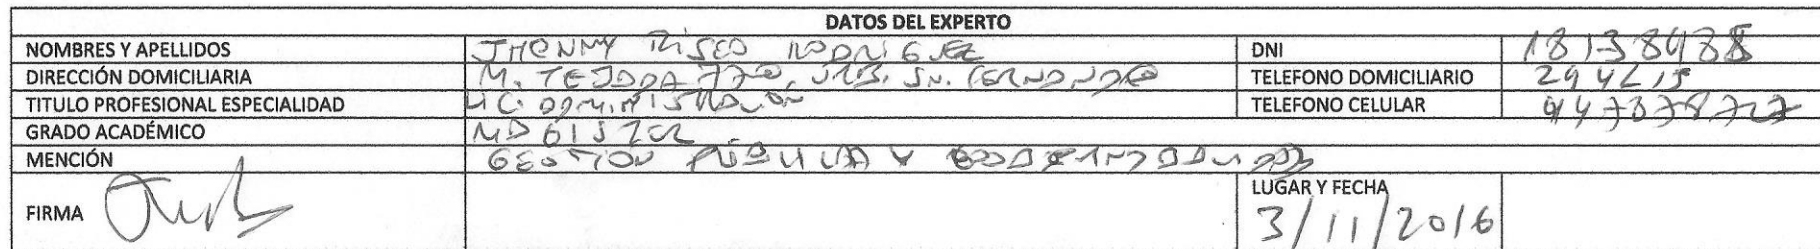 DATOS DEL EXPERTO
NOMBRES Y APELLIDOS JHONNY RISCO RODRIGUEZ DNI
DIRECCIÓN DOMICILIARIA M. TEJADA 770, URB. SN. FERNANDO TELEFONO DOMICILIARIO
TITULO PROFESIONAL ESPECIALIDAD LIC. ADMINISTRACIÓN TELEFONO CELULAR
GRADO ACADÉMICO MAGISTER
MENCIÓN GESTION PÚBLICA Y
FIRMA LUGAR Y FECHA
3/11/2016